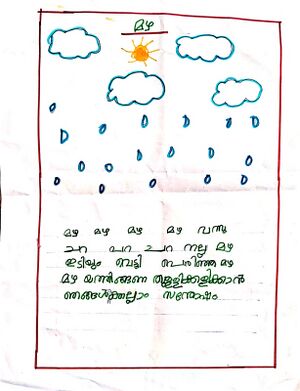 മഴ
മഴ മഴ മഴ മഴ വന്നു
ചറ പറ ചറ നല്ല മഴ
ഇടിയും വെട്ടി ചൊരിഞ്ഞ മഴ
മഴ തുള്ളിക്കളിക്കാൻ
ഞങ്ങൾക്കെല്ലാം സന്തോഷം